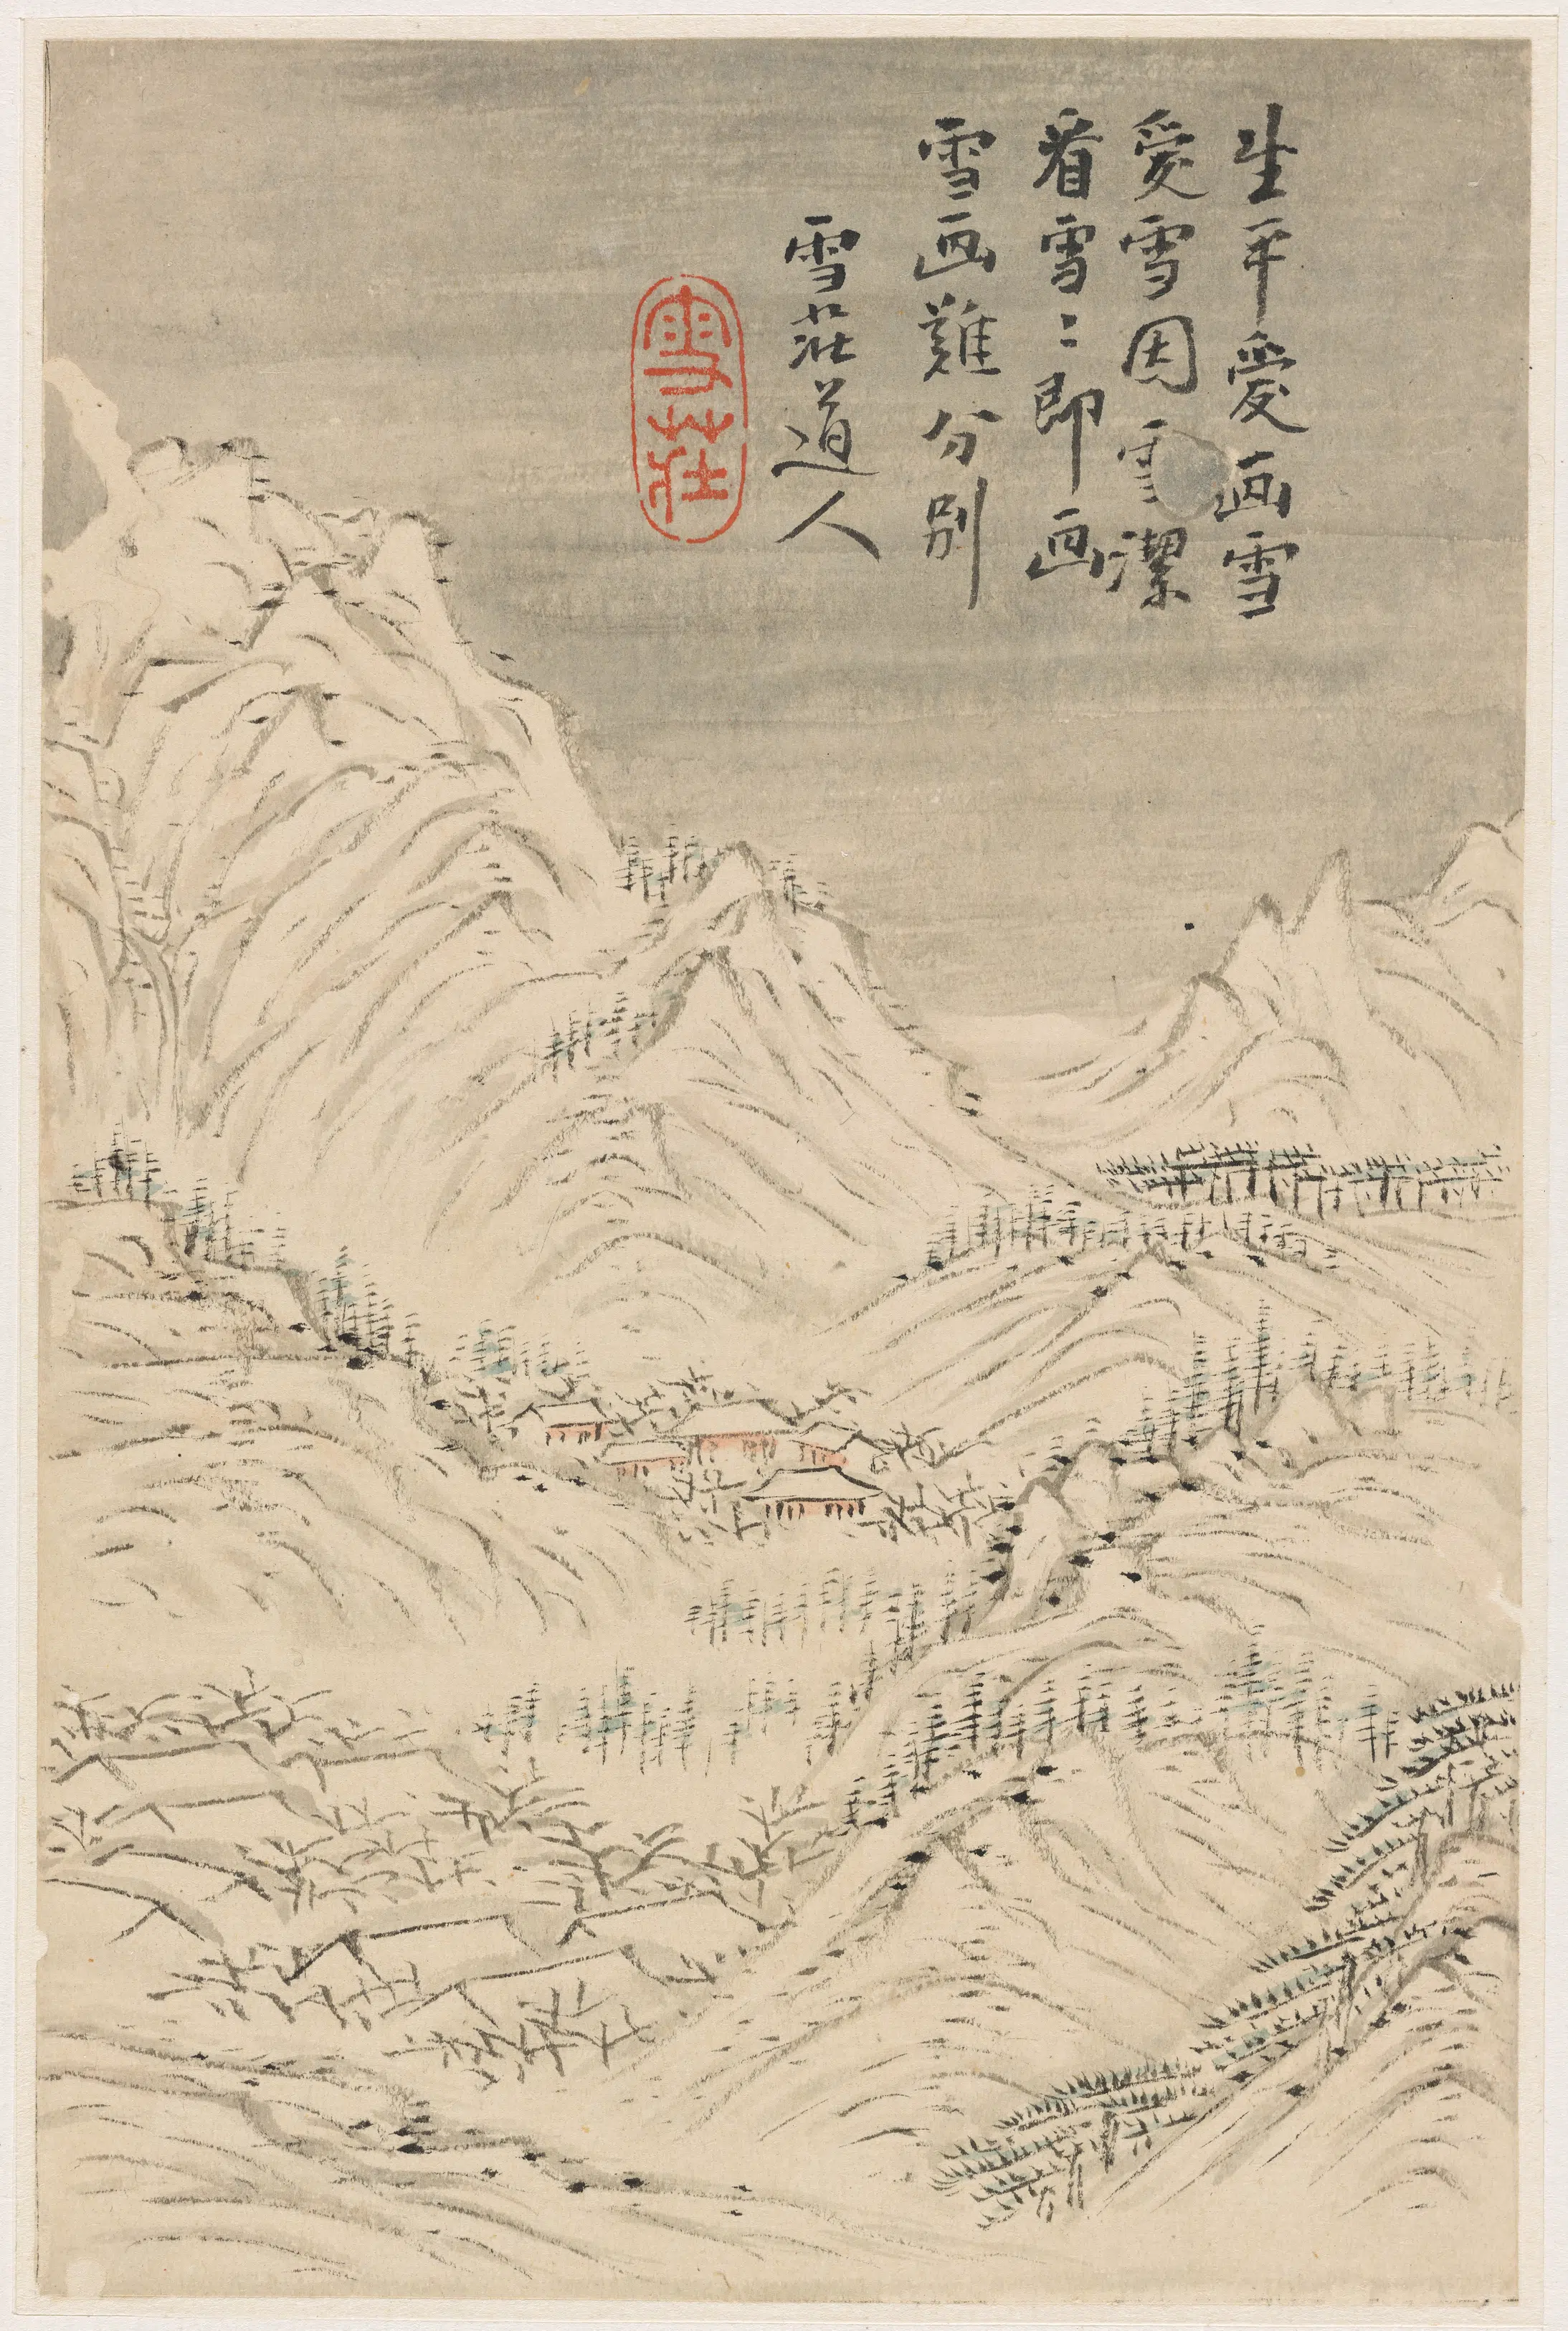 生平爱画雪
爱雪因雪潔
看雪〻即画
雪画難分別
雪荘道人
雪莊